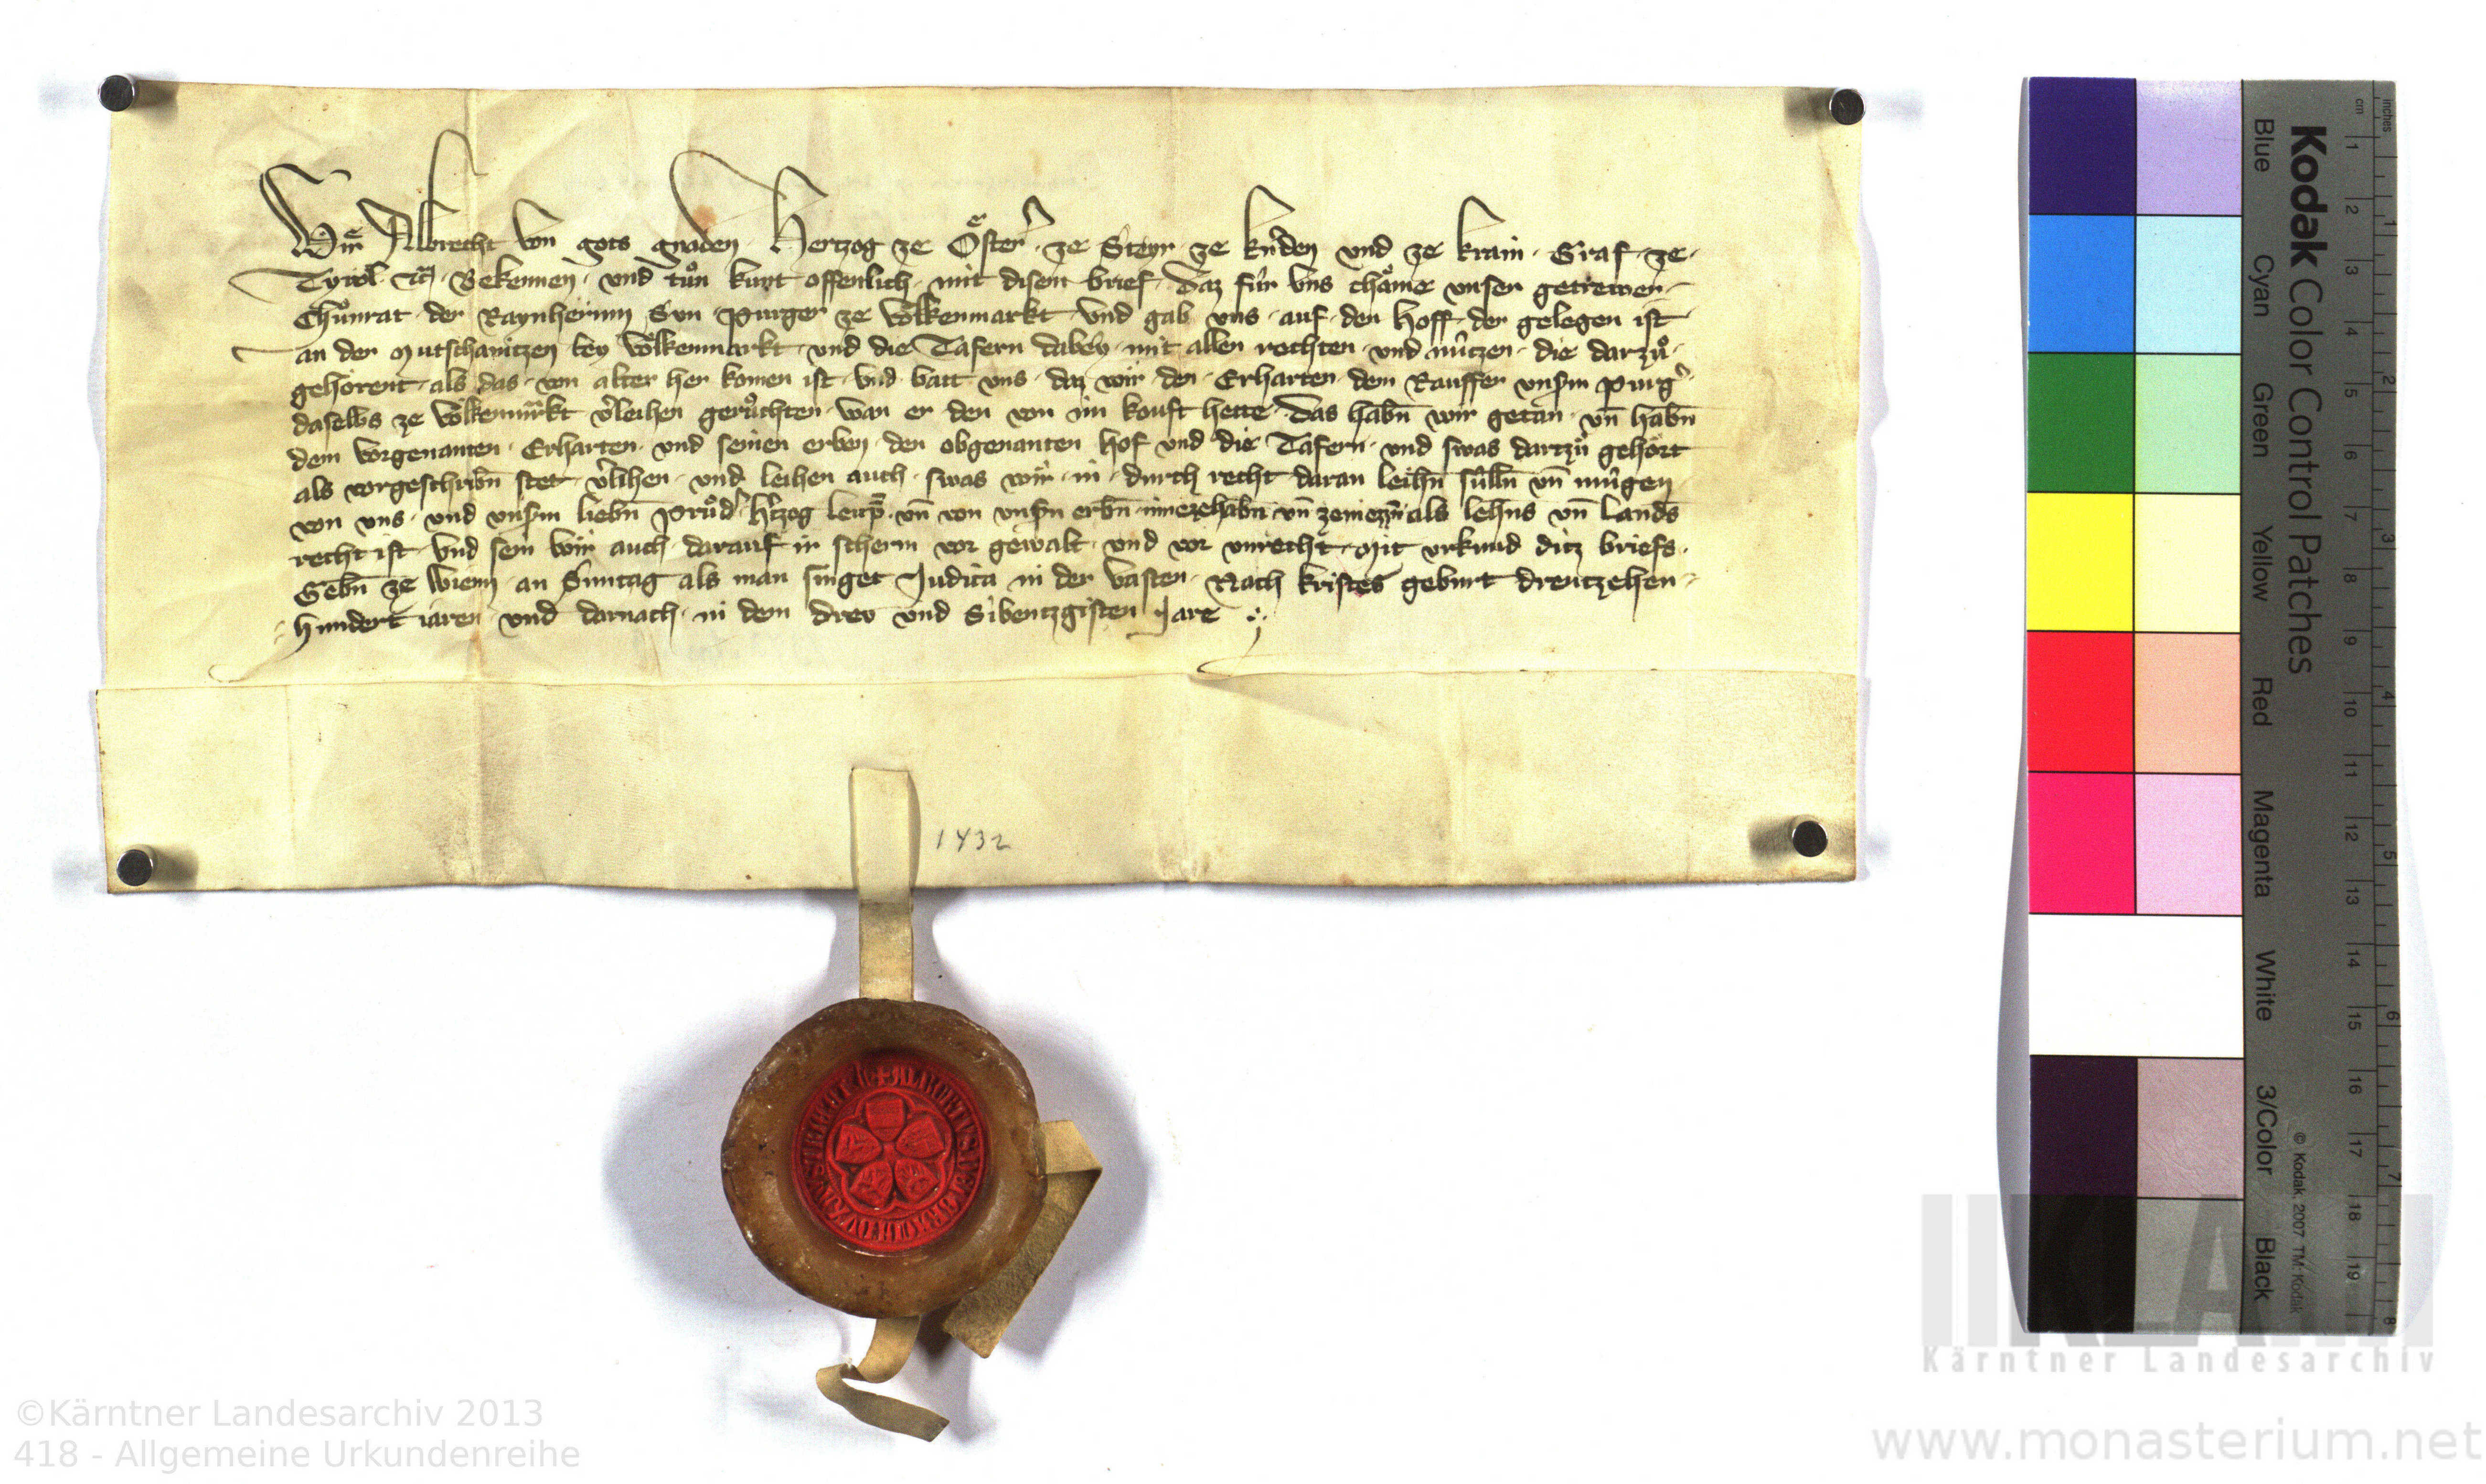 Wir Albrecht von gots gnaden Hertzog ze Öster̄ · ze Steyr · ze kēr̄nden und ze krain · Graf · ze ·
Tyrol · Bekennen · und tůn kunt offenlich · mit disem brief · Daz fu̍r vns chåme vnser getrewer
Chůnrat · der Raynherinn Sun purger ze Völkenmarkt · Vnd gab vns · auf · den Hoff · der gelegen ist
an der Mutschanitzen bey Völkenmarkt · und die Tafern dabey · mit allen rechten · und nützen · die darzů ·
gehörent · als das · von alter her komen ist · Vnd batt vns · daz wir · den · Erharten · dem Rauffer vnsm purg̍
daselbs ze Völkenmarkt v̍leihen gerůchten · wan er den von im kouft hette · Das habn̄ wir getan · vn̄ habn̄
dem vorgenanten · Erharten · und seinen erben · den obgenanten Hof und die Tafern · und swas dartzů gehört
als vorgeschribn̄ stet · v̍lihen · und leihen auch · swas wir · in · durch recht daran leihn̄ sülln̄ vn̄ mügen
von vns · und vnsm liebn̄ Průd̍ h̍tzog leup̄ · vn̄ von vnsn erbn̄ innezehabn̄ vn̄ als lehns vn̄ Lands
recht ist · Vnd sein wir auch · darauf ir scherm vor gewalt · und vor vnrecht · Mit vrkund ditz briefs ·
Gebn̄ ze Wienn · an Sunntag als man singet Judica in der Vasten · Nach kristes geburt dreutzehen
hundert iaren · und darnach · in dem drev und Sibentzgisten Jare
1432
Kodak Color Control Patches
Blue
Cyan
Green
Yellow
Red
Magenta
White
3/Color
Black
© Kodak, 2007 TM: Kodak
cm 1 2 3 4 5 6 7 8 9 10 11 12 13 14 15 16 17 18 19
inches 1 2 3 4 5 6 7 8
KLA
Kärntner Landesarchiv
©Kärntner Landesarchiv 2013
418 - Allgemeine Urkundenreihe
www.monasterium.net